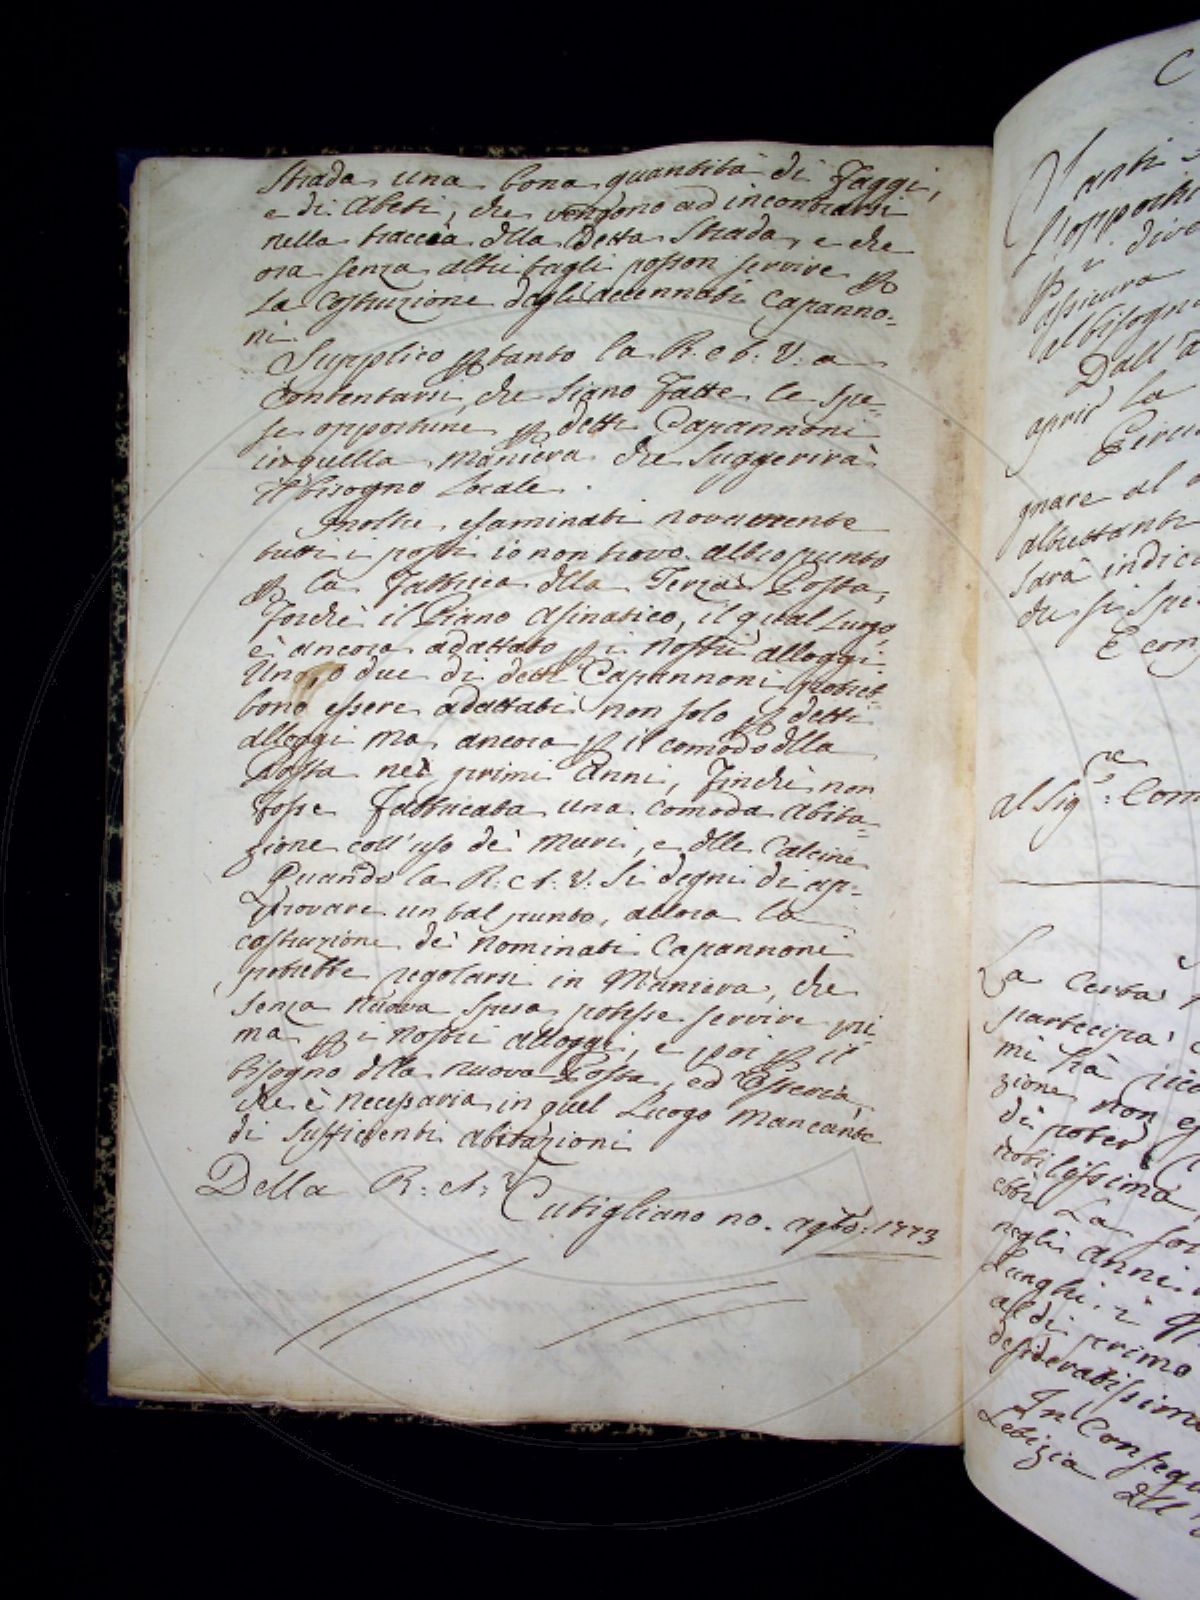 Strada una bona quantità di Faggi,
e di Abeti, che vengono ad incontrarsi
nella traccia dlla detta Strada, e che
ora senza altri tagli posson servire p
la Costruzione degli accennati Capanno=
ni.
Supplico ptanto la R. A. V. a
Contentarsi, che siano fatte le spe=
se opportune p detti Capannoni
in quella maniera che suggerirà
il bisogno locale.
Inoltre esaminati novamente
tutti i posti io non trovo altro punto
p la Fabbrica dlla Terza Posta,
forchè il Piano Asinatico, il qual Luogo
è ancora adattato p i nostri alloggi.
Uno, o due di detti Capannoni potreb=
bono essere adattati non solo p detti
alloggi ma ancora p il comodo dlla
Posta nei primi Anni, finchè non
fosse fabbricata una comoda abita=
zione coll'uso de' Muri, e dlle Calcine
Quando la R: A: V. si degni di ap=
provare un tal punto, allora la
costruzione de' nominati Capannoni
potrebbe regolarsi in Maniera, che
senza nuova spesa potesse servire pri=
ma p i nostri alloggi, e poi p il
bisogno dlla nuova Posta, ed Osteria,
che è necessaria in quel Luogo mancante
di sufficienti abitazioni
Della R: A: V
Cutigliano agto: 1773
C
Tanti
l'opportu
p dive
assicura
al bisogn
Dall'a
april la
Circa
gnare al
altrettanti
sarà indica
che si spe
E con
al Sigre: Com
La Certa
partecipa
mi hà
zione non
di poter
nobilissima
ebbi La
negli anni
Lunghi
al di primo
desideratissima
In Consegu
Letizia dll